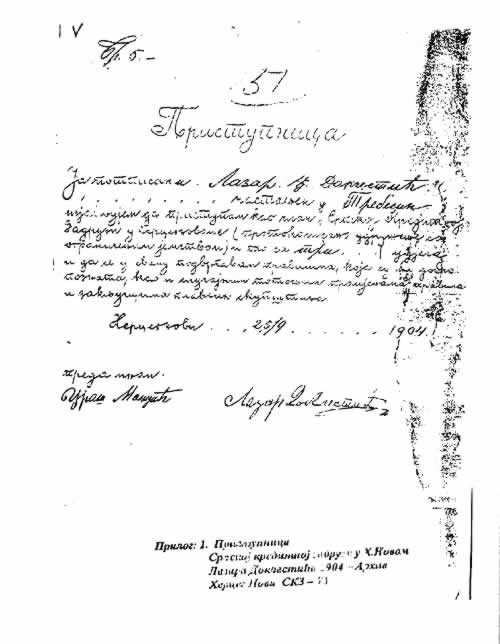 IV
Бр. 5.-
51
Приступница
Ја потписани . Лазар. Ђ. Доклестић
настањен у Требесин
изјављујем да приступам као члан Српској Кредитној
Задрузи у Ерцегновоме
ограниченим јемством) и то са три.
и да се у свему подвргавам правилима, која су ми добро
позната, као и
и закључцима главних скупштина.
Херцегнови . . . 25/9 . . . . . . . . 1904.
преда мном.
Лазар Доклестић
Прилог: 1. Приступница
Српској кредитној задрузи у Х.Новом
Лазара Доклестића 1904 – Архив
Херцег Нови СКЗ –